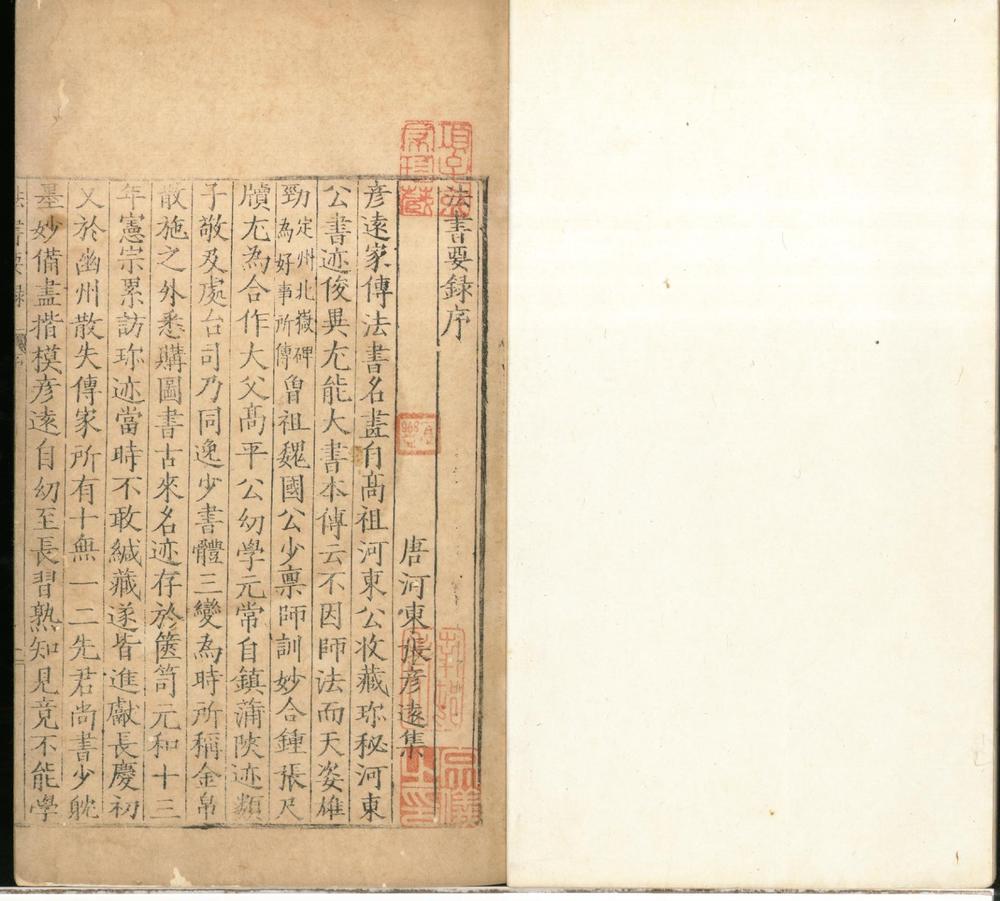 法書要録序
唐河東張彦遠集
彦遠家傳法書名畫自髙祖河東公收藏珎秘河東
公書迹俊異尤能大書本傳云不因師法而天姿雄
勁定州北嶽碑為好事所傳曾祖魏國公少稟師訓妙合鍾張尺
牘尤為合作大父髙平公幼學元常自鎮蒲陜迹類
子敬及處台司乃同逸少書體三變為時所稱金帛
散施之外悉購圖書古來名迹存於篋笥元和十三
年憲宗累訪珎迹當時不敢緘藏遂皆進獻長慶初
又於幽州散失傳家所有十無一二先君尚書少躭
墨妙備盡揩模彦遠自幼至長習熟知見竟不能學
法書要録
項子京
家珍藏